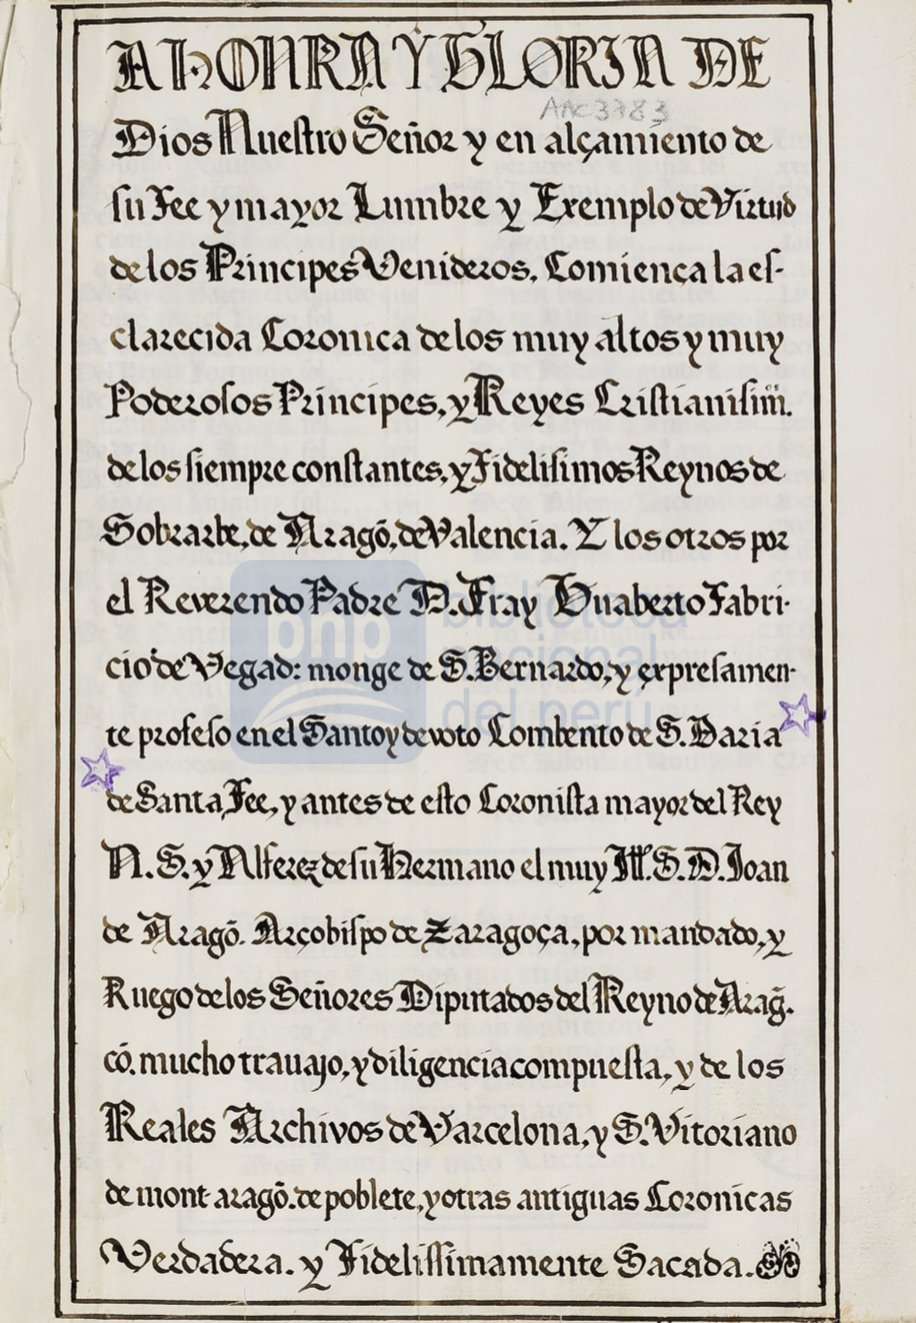 A HONRA Y GLORIA DE
AAC3783
Dios Nuestro Señor y en alçamiento de
su Fee y mayor Lumbre y Exemplo de Virtud
de los Principes Venideros. Comiença la es-
clarecida Coronica de los muy altos y muy
Poderosos Principes, y Reyes Cristianisim̃.
de los siempre constantes, y Fidelisimos Reynos de
Sobrarbe, de Aragõ, de Valencia. Y los otros por
el Reverendo Padre D. Fray Huaberto Fabri-
cio de Vegad: monge de S. Bernardo, y expresamen-
te profeso en el Santo y devoto Combento de S. Maria
de Santa Fee, y antes de esto Coronista mayor del Rey
N. S. y Alferez de su Hermano el muy Ill. S. D. Joan
de Aragõ. Arçobispo de Zaragoça, por mandado, y
Ruego de los Señores Diputados del Reyno de Arag̃.
cõ. mucho trauajo, y diligencia compuesta, y de los
Reales Archivos de Varcelona, y S. Vitoriano
de mont aragõ. de poblete, y otras antiguas Coronicas
Verdadera. y Fidelissimamente Sacada.
bnp biblioteca
nacional
del perú